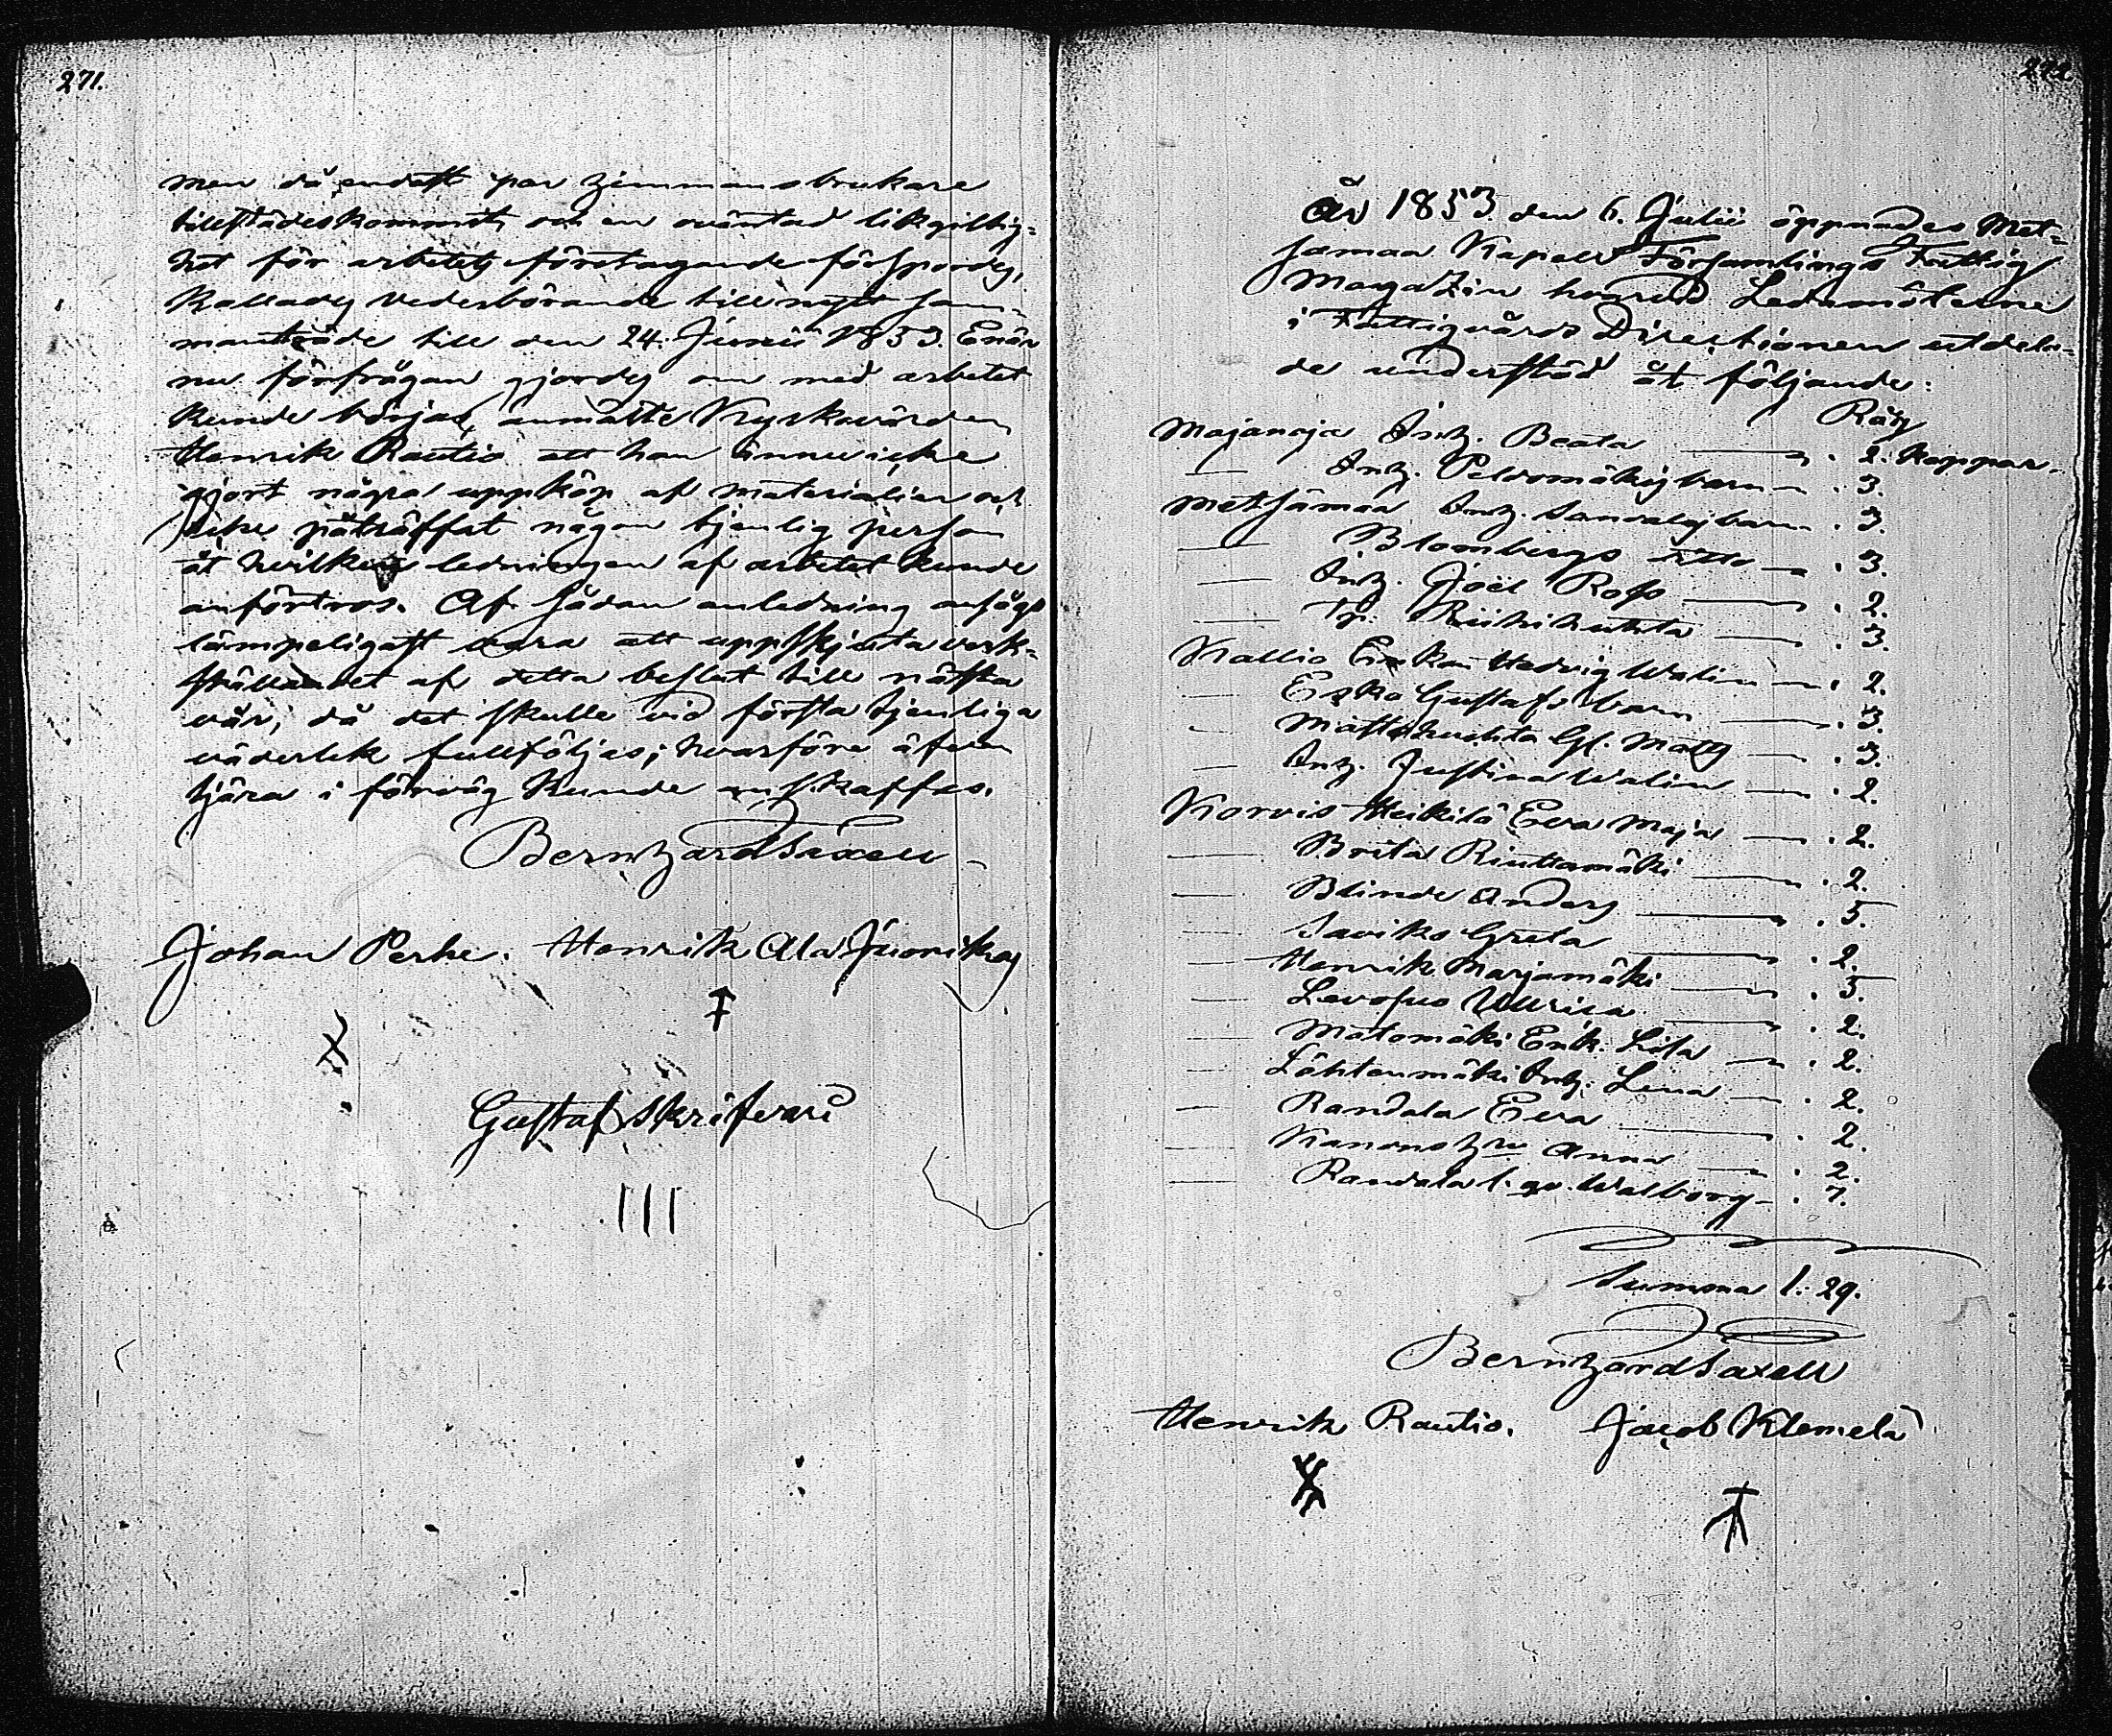 271.
men då endast par hemmansbrukare
tillstädeskommit, och en oväntad likgiltig=
het för arbetets företagande försports,
kallades vederbörande till nytt sam=
manträde till den 24. Junii 1853. Enär
nu förfrågan gjordes om med arbetet
kunde börjas, anmälte Kyrkovärden
Henrik Rautio att han ännu icke
gjort några uppköp af materialier och
icke påträffat någon tjenlig person
åt hvilken ledningen af arbetet kunde
anförtros. Af sådan anledning ansågs
lämpeligast vara att uppskjuta verk=
ställandet af detta beslut till nästa
vår, då det skulle vid första tjenliga
väderlek fullföljas; hvarföre äfven
tjära i förväg kunde anskaffas.
Bernhard Saxell
Johan Perhe. Henrik Ala Juonikas
Gustaf Skrifvari
III
272
År 1853 den 6. Julii öppnades Met=
samaa Kapell Församlings Fattig
Magazin hvarvid Ledamöterne
i Fattigvårds Directionen utdela=
de understöd åt följande:
Råg
Majanoja Inh. Beata — . 2. kappar.
— Inh. Peldomäkis barn — . 3.
Metsämaa Inh. barn . 3.
— Blombergs ditto — . 3.
— Inh. Joël Ross — . 2.
— Tp. Riihihuhta — . 3.
Kallio Enkan Hedvig Walin — . 2.
— Esko Gustafs barn — . 3.
— huhta Gl. Matts — . 3.
— Inh. Justina Walin — . 2.
Korvis Heikilä Eva Maja — . 2.
— Brita Rintamäki — . 2.
— Blinde Anders — . 5.
— Saviko Greta — . 2.
— Henrik Marjamäki — . 5.
— Ullrica — . 2.
— Matomäki Enk. Lisa — . 2.
— Lähtenmäki Inh. Lena — . 2.
— Randala Eva — . 2.
— Anna — . 2.
— Randala Walborg — . 7.
Summa 1: 29.
Bernhard Saxell
Henrik Rautio. Jacob Klemelä